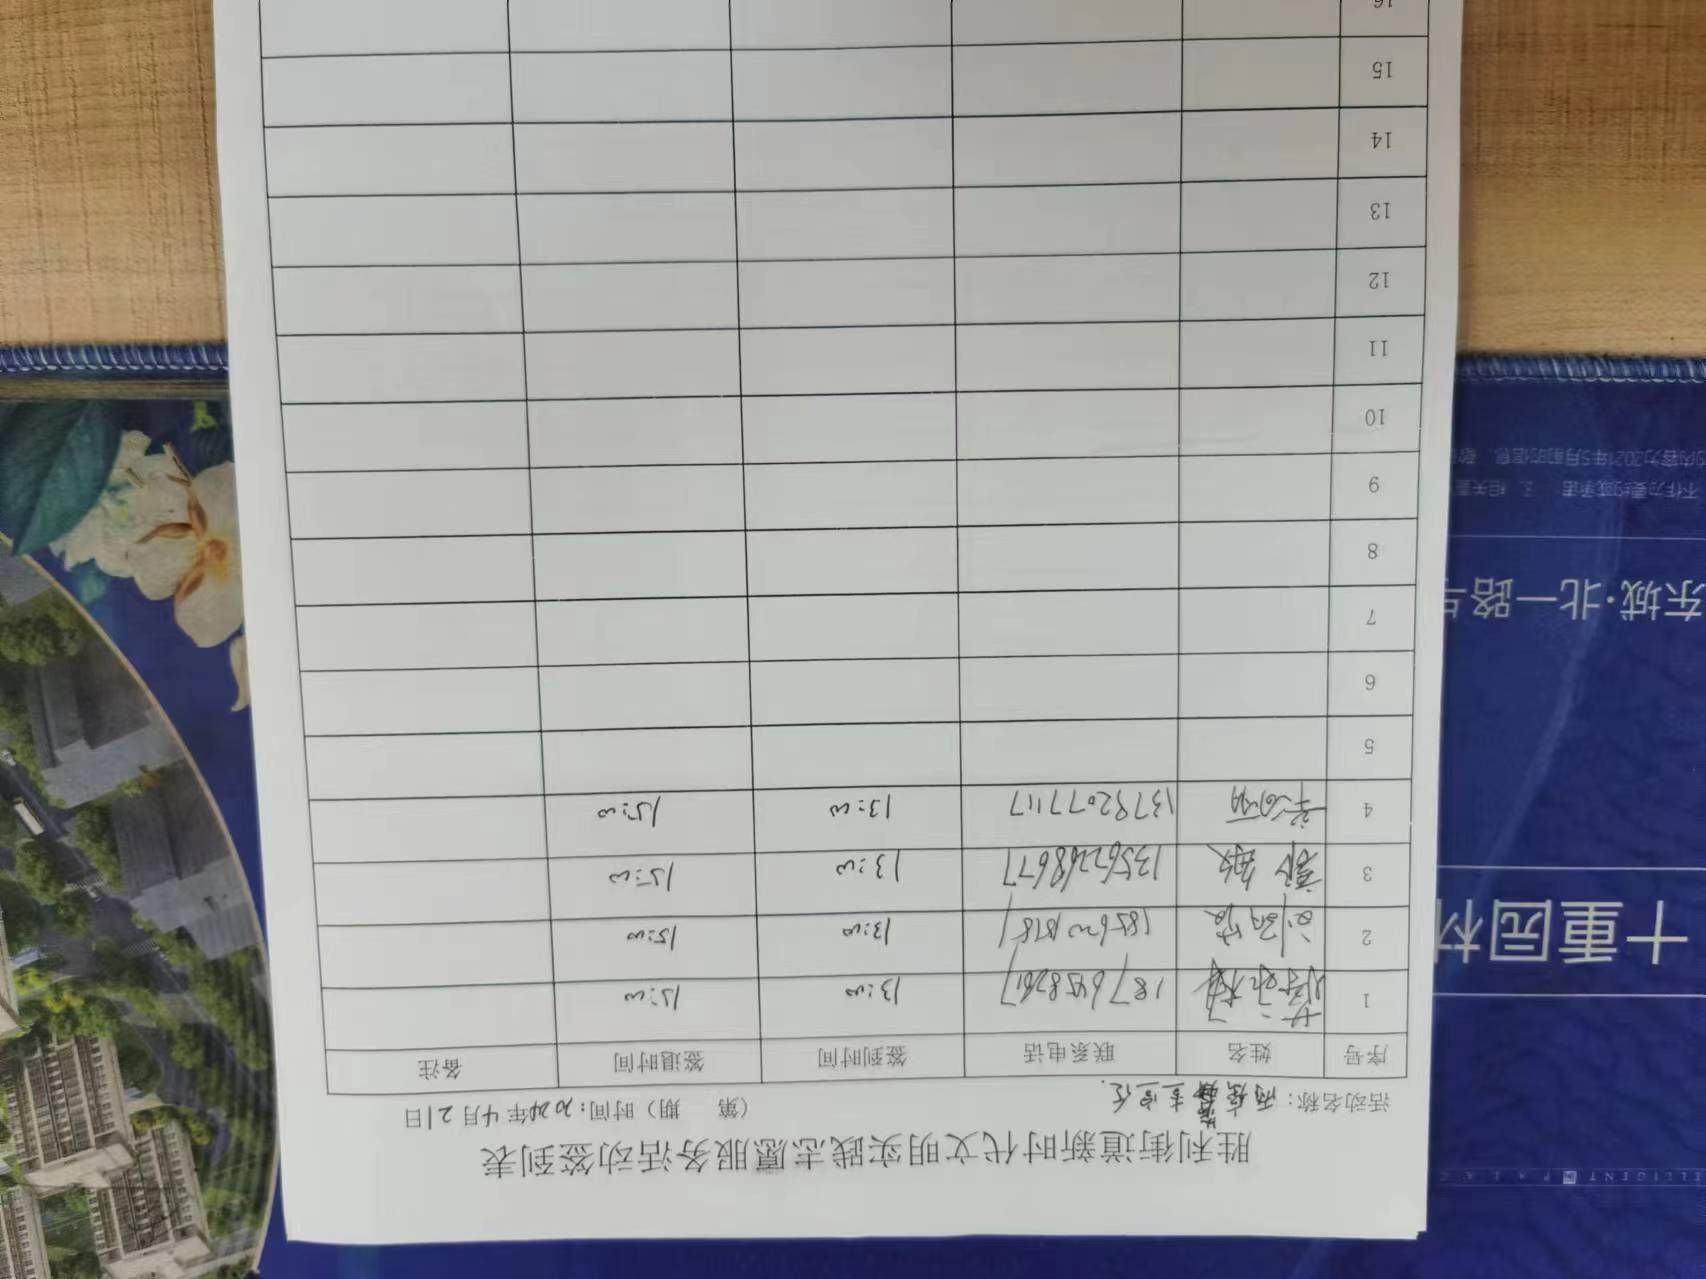 胜利街道新时代文明实践志愿服务活动签到表
活动名称： （第 期）时间：2024年4月21日
序号 姓名 联系电话 签到时间 签退时间 备注
1 18764582617 13:00 15:00
2 刘 18562001878 13:00 15:00
3 敏 13562268677 13:00 15:00
4 13792077117 13:00 15:00
5
6
7
8
9
10
11
12
13
14
15
16
十重园林
东城·北一路与
不作为要约或承诺
内容为2021年5月前的信息，敬